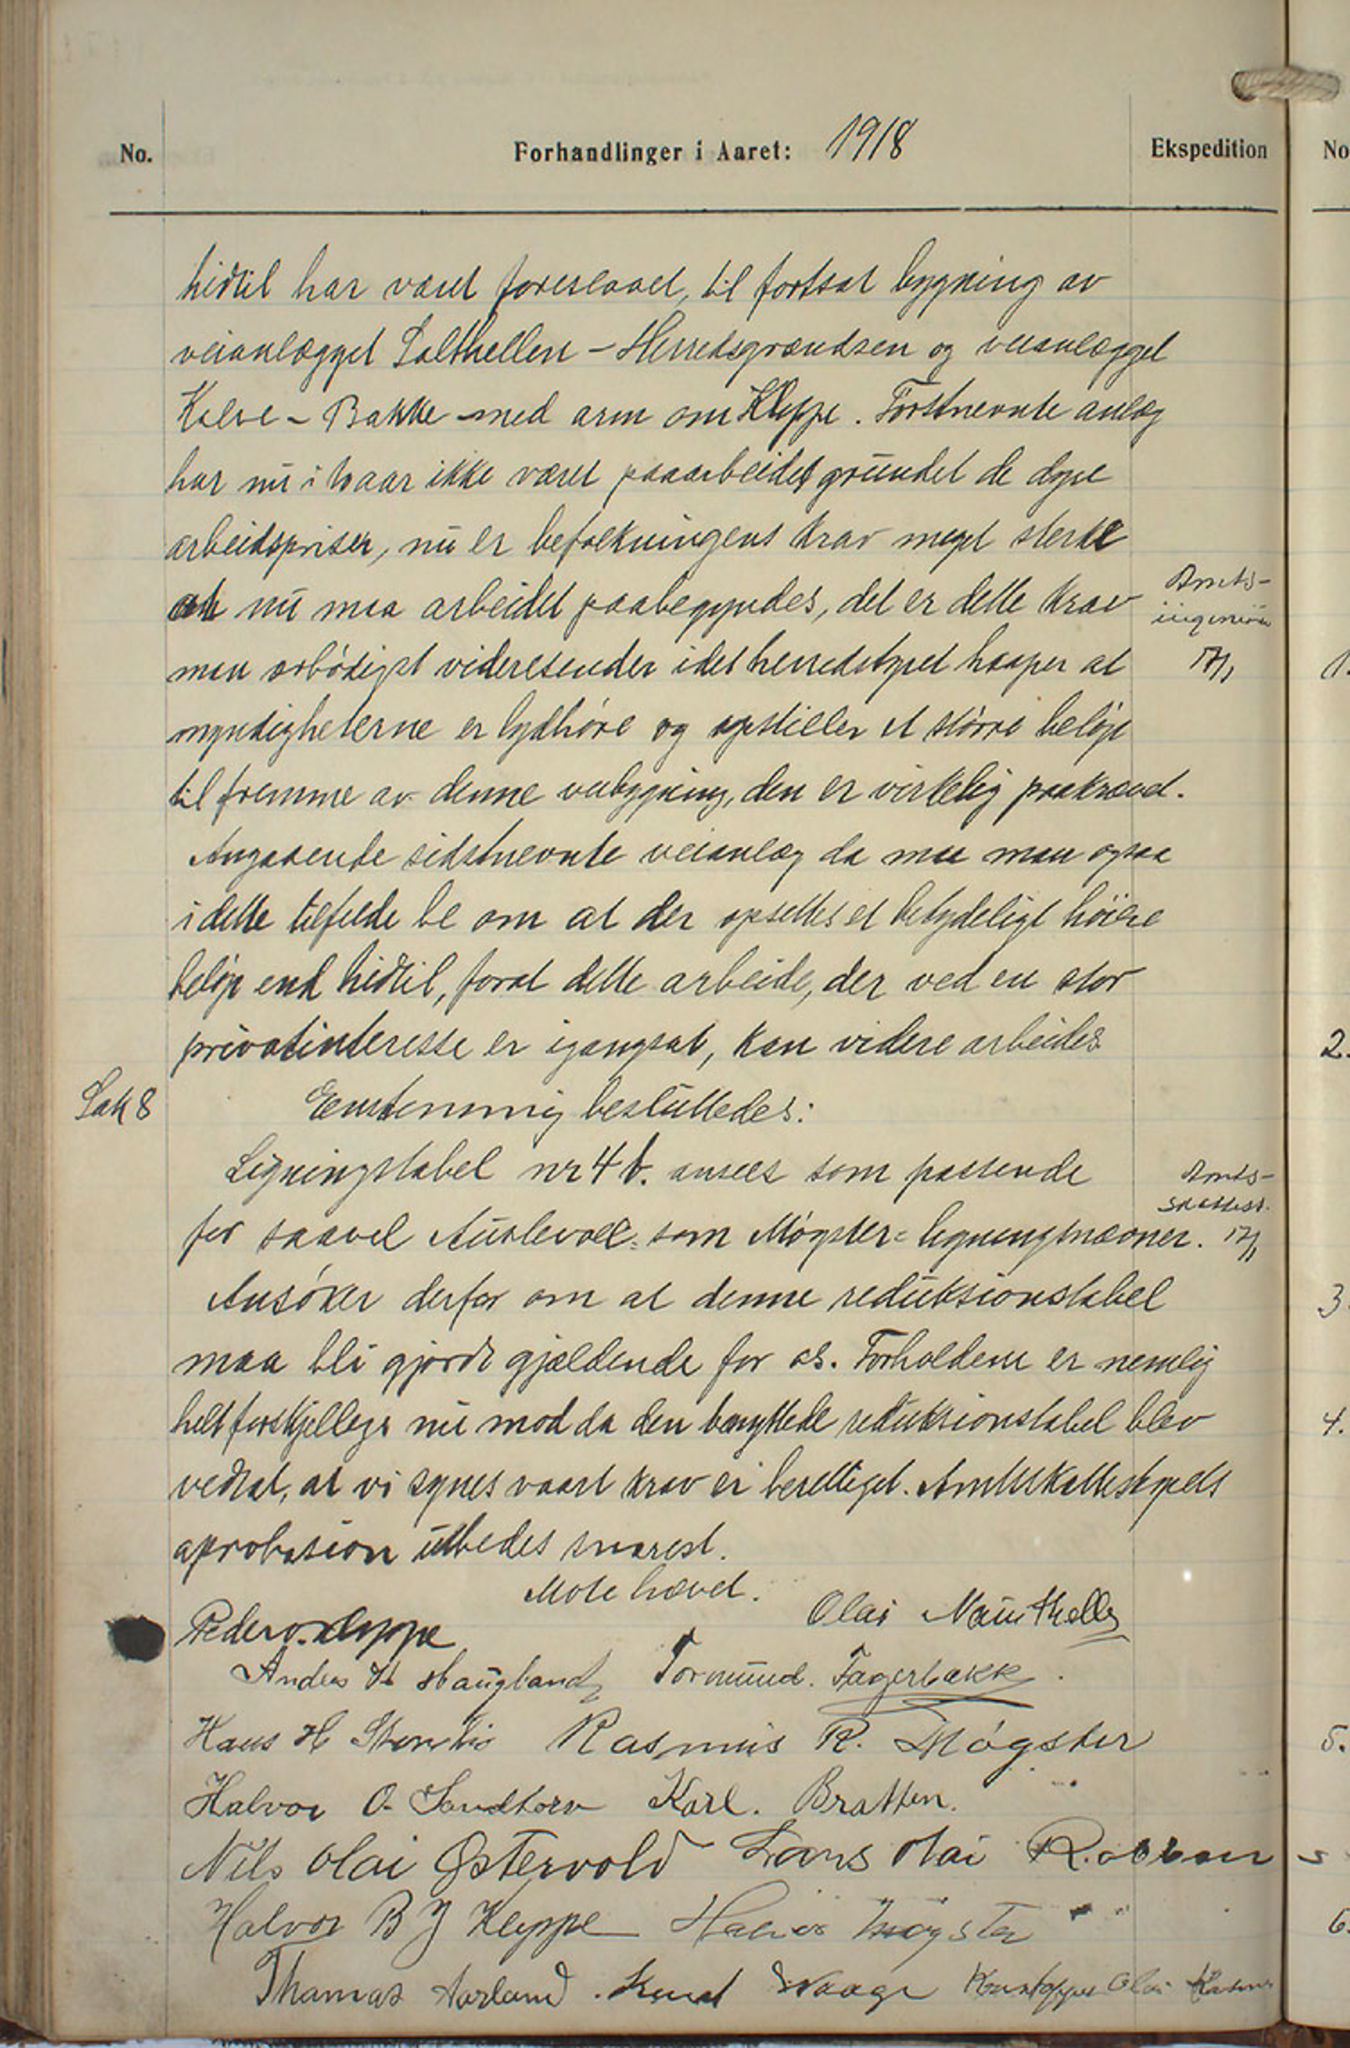 No.
Forhandlinger i Aaret: 1918
Ekspedition
No
hidtil har været foreslaaet, til fortsat bygning av
veianlægget Salthellen - Herredsgrændsen og veianlægget
Kolve - Bakke - med arm om Kleppe. Førstnevnte anlæg
har nu i to aar ikke været paaarbeidet grundet de dyre
arbeidspriser, nu er befolkningens krav meget sterke
at nu maa arbeidet paabegyndes, det er dette krav
Amts-
ingeniör
man ærbödigst videresender idet herredstyret haaper at
17/1
1.
myndigheterne er lydhøre og opstiller et større beløp
til fremme av denne veibygning, den er virkelig paakrævd.
Angaaende sidstnevnte veianlæg da maa man ogsaa
i dette tilfelde be om at der opsettes et betydeligt höiere
beløp end hidtil, forat dette arbeide, der ved en stor
privatinteresse er igangsat, kan videre arbeides.
2.
Sak 8
Eenstemmig besluttedes:
Ligningstabel nr 4 b. ansees som passende
Amts-
skattest.
for saavel Austevoll- som Møgster- ligningsnævner.
17/1
Ansöker derfor om at denne reduksionstabel
3.
maa bli gjordt gjældende for os. Forholdene er nemlig
helt forskjellige nu mod da den benyttede reduksionstabel blev
4.
vedtat, at vi synes vaart krav er berettiget. Amtskattestyrets
aprobasion utbedes snarest.
Møte hævet.
Peder O. Kleppe
Olai Maukthelle
Anders H Haugland
Tormund. Fagerbakk.
Hans H
Rasmus R. Møgster
5.
Halvor O. Sandtorv
Karl. Bratten.
Nils Olai Østervold
Lars Olai
Halvor B J Kleppe
Møgster
6.
Thomas Aarland.
Knud Waage
Olai